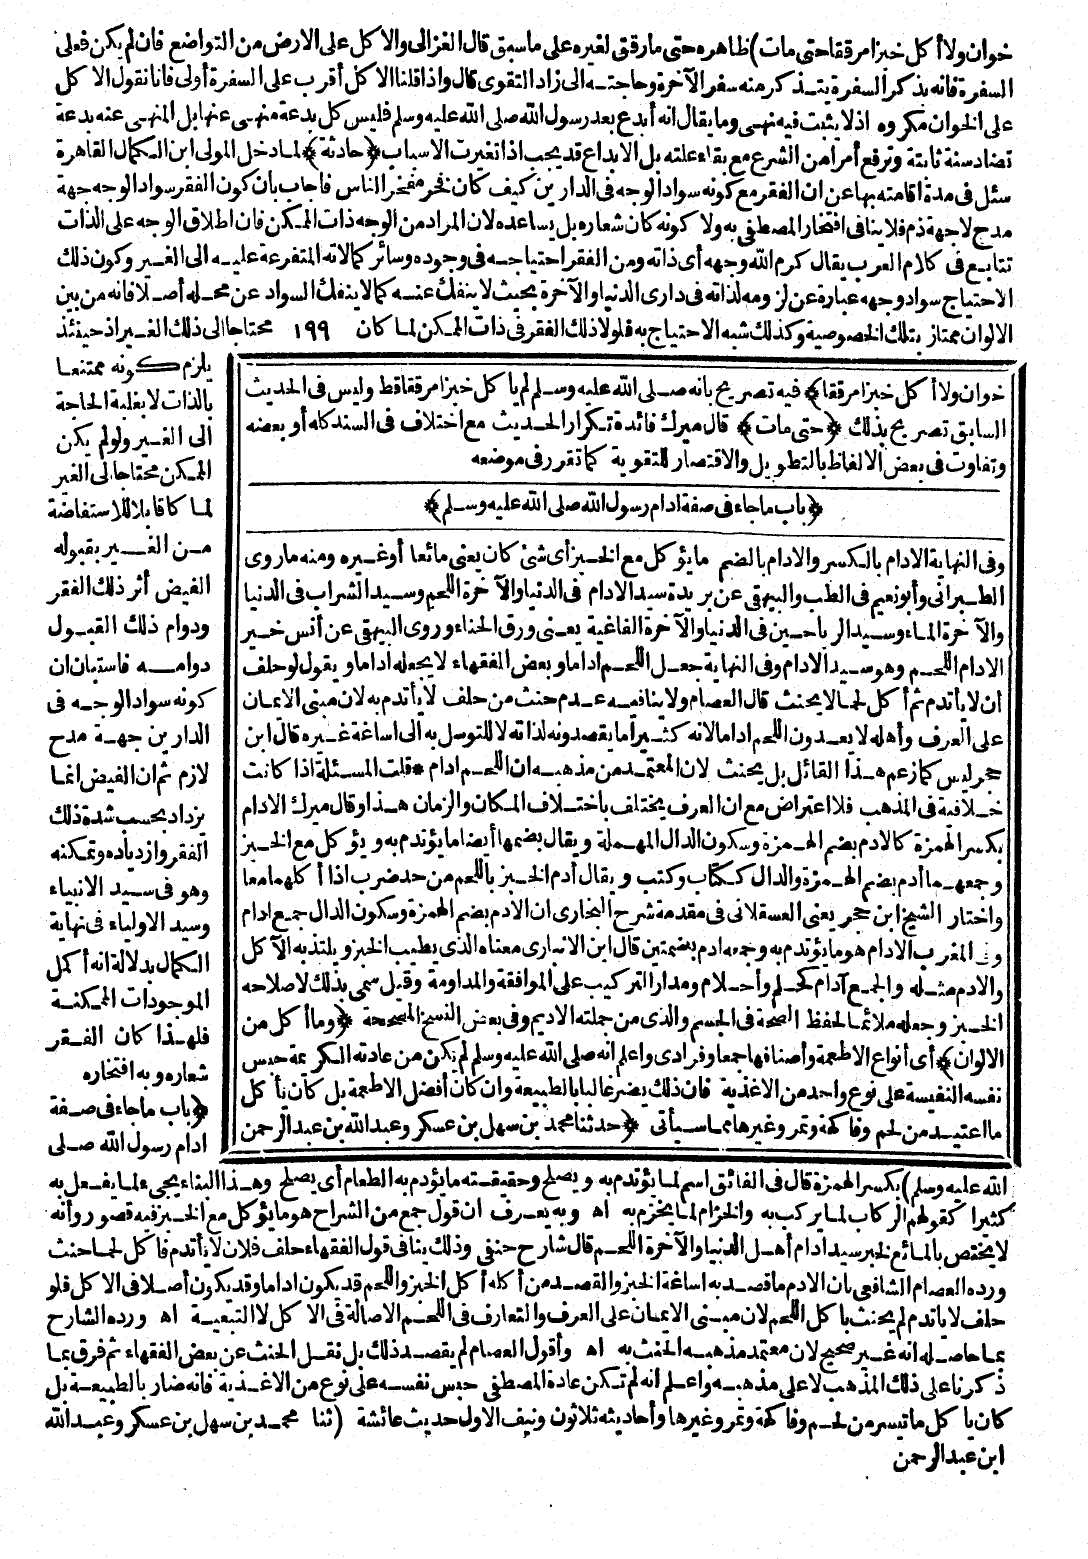 خوان ولا أكل خبزا مرققا حتى مات) ظاهره حتى مارقق لغيره على ما سبق قال الغزالى والاكل على الارض من التواضع فان لم يكن فعلى
السفرة فانه يذكر السفرة يتذكر منه سفر الآخرة وحاجته الى زاد التقوى قال واذا قلنا الاكل أقرب على السفرة أولى فانا نقول الاكل
على الخوان مكروه اذ لا يثبت فيه نهى وما يقال انه أبدع بعد رسول الله صلى الله عليه وسلم فليس كل بدعة منهى عنها بل المنهى عنه بدعة
تضاد سنة ثابتة وترفع أمرا من الشرع مع بقاء علته بل الابداع قد يجب اذا تغيرت الاسباب ﴿حادثة﴾ لما دخل المولى ابن الكمال القاهرة
سئل فى مدة اقامته بها عن ان الفقر مع كونه سواد الوجه فى الدارين كيف كان فخر مفخر الناس فاجاب بان كون الفقر سواد الوجه جهة
مدح لا جهة ذم فلا ينافى افتخار المصطفى به ولا كونه كان شعاره بل يساعده لان المراد من الوجه ذات الممكن فان اطلاق الوجه على الذات
تتابع فى كلام العرب يقال كرم الله وجهه أى ذاته ومن الفقر احتياجه فى وجوده وسائر كمالاته المتفرعة عليه الى الغير وكون ذلك
الاحتياج سواد وجهه عبارة عن لزومه لذاته فى دارى الدنيا والآخرة بحيث لا ينفك عنه كما لا ينفك السواد عن محله أصلا فانه من بين
الالوان ممتاز بتلك الخصوصية وكذلك شبه الاحتياج به فلولا ذلك الفقر فى ذات الممكن لما كان ١٩٩ محتاجا الى ذلك الغير اذ حينئذ
يلزم كونه ممتنعا
بالذات لا بغلبة الحاجة
الى الغير ولو لم يكن
الممكن محتاجا الى الغير
لما كان قابلا للاستفاضة
من الغير بقبوله
الفيض أثر ذلك الفقر
ودوام ذلك القبول
دوامه فاستبان ان
كونه سواد الوجه فى
الدارين جهة مدح
لازم ثم ان الفيض انما
يزداد بحسب شدة ذلك
الفقر وازدياده وتمكنه
وهو فى سيد الانبياء
وسيد الاولياء فى نهاية
الكمال بدلالة انه أكمل
الموجودات الممكنة
فلهذا كان الفقر
شعاره وبه افتخاره
﴿باب ما جاء فى صفة
ادام رسول الله صلى
خوان ولا أكل خبزا مرققا﴾ فيه تصريح بانه صلى الله عليه وسلم لم يأكل خبزا مرققا قط وليس فى الحديث
السابق تصريح بذلك ﴿حتى مات﴾ قال ميرك فائدة تكرار الحديث مع اختلاف فى السند كله أو بعضه
وتفاوت فى بعض الالفاظ بالتطويل والاقتصار للتقوية كما تقرر فى موضعه
﴿باب ما جاء فى صفة ادام رسول الله صلى الله عليه وسلم﴾
وفى النهاية الادام بالكسر والادام بالضم ما يؤكل مع الخبز أى شئ كان يعنى مائعا أو غيره ومنه ما روى
الطبرانى وأبو نعيم فى الطب والبيهقى عن بريدة سيد الادام فى الدنيا والآخرة اللحم وسيد الشراب فى الدنيا
والآخرة الماء وسيد الرياحين فى الدنيا والآخرة الفاغية يعنى ورق الحناء وروى البيهقى عن أنس خير
الادام اللحم وهو سيد الادام وفى النهاية جعل اللحم اداما وبعض الفقهاء لا يجعله اداما ويقول لو حلف
أن لا يأتدم ثم أكل لحما لا يحنث قال العصام ولا ينافيه عدم حنث من حلف لا يأتدم به لان مبنى الايمان
على العرف وأهله لا يعدون اللحم اداما لانه كثيرا ما يقصدونه لذاته لا للتوسل به الى اساغة غيره قال ابن
حجر ليس كما زعم هذا القائل بل يحنث لان المعتمد من مذهبه ان اللحم ادام * قلت المسئلة اذا كانت
خلافية فى المذهب فلا اعتراض مع ان العرف يختلف باختلاف المكان والزمان هذا وقال ميرك الادام
بكسر الهمزة كالادم بضم الهمزة وسكون الدال المهملة ويقال بضمها أيضا ما يؤتدم به ويؤكل مع الخبز
وجمعه ما أدم بضم الهمزة والدال ككتاب وكتب ويقال أدم الخبز باللحم من حد ضرب اذا أكلهما معا
واختار الشيخ ابن حجر يعنى العسقلانى فى مقدمة شرح البخارى ان الادم بضم الهمزة وسكون الدال جمع ادام
وفى المغرب الادام هو ما يؤتدم به وجمعه ادم بضمتين قال ابن الانبارى معناه الذى يطيب الخبز ويلتذ به الآكل
والادم مثله والجمع آدام كحلم وأحلام ومدار التركيب على الموافقة والمداومة وقيل سمى بذلك لاصلاحه
الخبز وجعله ملائما لحفظ الصحة فى الجسم والذى من جملته الاديم وفى بعض النسخ المصححة ﴿وما أكل من
الالوان﴾ أى أنواع الاطعمة وأصنافها جمعا وفرادى واعلم انه صلى الله عليه وسلم لم يكن من عادته الكريمة حبس
نفسه النفيسة على نوع واحد من الاغذية فان ذلك يضر غالبا بالطبيعة وان كان أفضل الاطعمة بل كان يأكل
ما اعتيد من لحم وفاكهة وتمر وغيرها مما سيأتى ﴿حدثنا محمد بن سهل بن عسكر وعبد الله بن عبد الرحمن
الله عليه وسلم) بكسر الهمزة قال فى الفائق اسم لما يؤتدم به ويصلح وحقيقته ما يؤدم به الطعام أى يصلح وهذا البناء يجىء لما يفعل به
كثيرا كقولهم الركاب لما يركب به والخزام لما يخزم به اه وبه يعرف ان قول جمع من الشراح هو ما يؤكل مع الخبز فيه قصور وأنه
لا يختص بالمائع لخبر سيد ادام أهل الدنيا والآخرة اللحم قال شارح حنفى وذلك ينافى قول الفقهاء حلف فلان لا يأتدم فأكل لحما حنث
ورده العصام الشافعى بان الادم ما قصد به اساغة الخبز والقصد من أكله أكل الخبز واللحم قد يكون اداما وقد يكون أصلا فى الاكل فلو
حلف لا يأتدم لم يحنث بأكل اللحم لان مبنى الايمان على العرف والتعارف فى اللحم الاصالة فى الاكل لا التبعية اه ورده الشارح
بما حاصله انه غير صحيح لان معتمد مذهبه الحنث به اه وأقول العصام لم يقصد ذلك بل نقل الحنث عن بعض الفقهاء ثم فرق بما
ذكرنا على ذلك المذهب لا على مذهبه واعلم أنه لم تكن عادة المصطفى حبس نفسه على نوع من الاغذية فانه ضار بالطبيعة بل
كان يأكل ما تيسر من لحم وفاكهة وتمر وغيرها وأحاديثه ثلاثون ونيف الاول حديث عائشة (ثنا محمد بن سهل بن عسكر وعبد الله
ابن عبد الرحمن